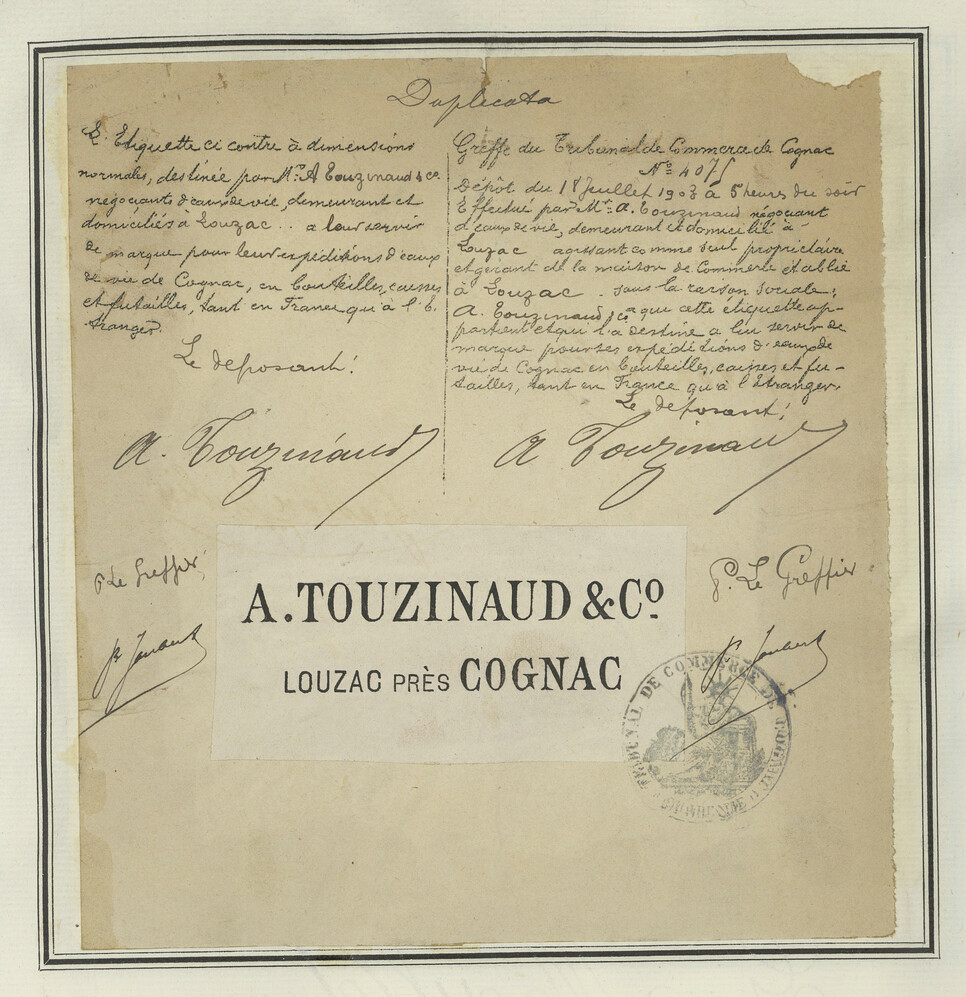 Duplicata
L'Etiquette ci contre à dimensions
normales, destinée par Mr. A Touzinaud & Co.
négociants d'eau de vie, demeurant et
domiciliés à Louzac .. a leur servir
de marque pour leur expéditions d'eaux
de vie de Cognac, en bouteilles, caisses
et futailles, tant en France qu'à l'E
tranger.
Le deposant!
A. Touzinaud
Greffe du Tribunal de Commerce de Cognac
No 4075
Dépôt du 18 Juillet 1903 à 5 heures du soir
Effectué par Mr. A. Touzinaud négociant
d'eaux de vie, demeurant et domicilié à
Louzac agissant comme seul propriétaire
et gérant de la maison de Commerce établie
à Louzac . sous la raison sociale:
A. Touzinaud & Co que cette étiquette ap-
partient et qui l'a destiné a lui servir de
marque pour ses expéditions d'eaux de
vie de Cognac en bouteilles, caisses et fu-
tailles, tant en France qu'à l'Etranger.
Le déposant!
A Touzinaud
P Le Greffier
P. Le Greffier
A. TOUZINAUD & Co.
LOUZAC PRÈS COGNAC
TRIBUNAL DE COMMERCE DE
CHARENTE